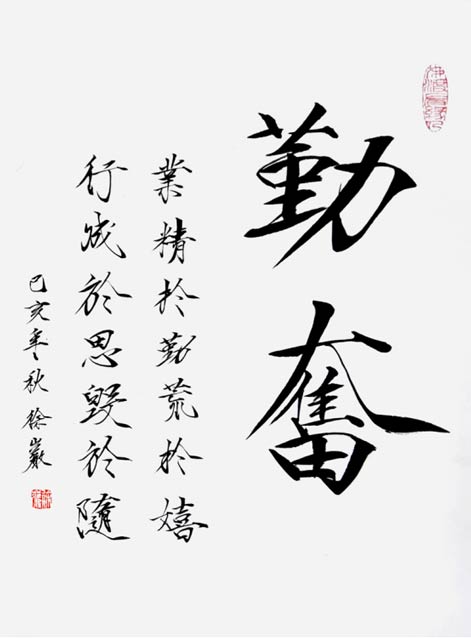 勤奮
業精於勤荒於嬉
行成於思毀於隨
己亥年秋徐巖